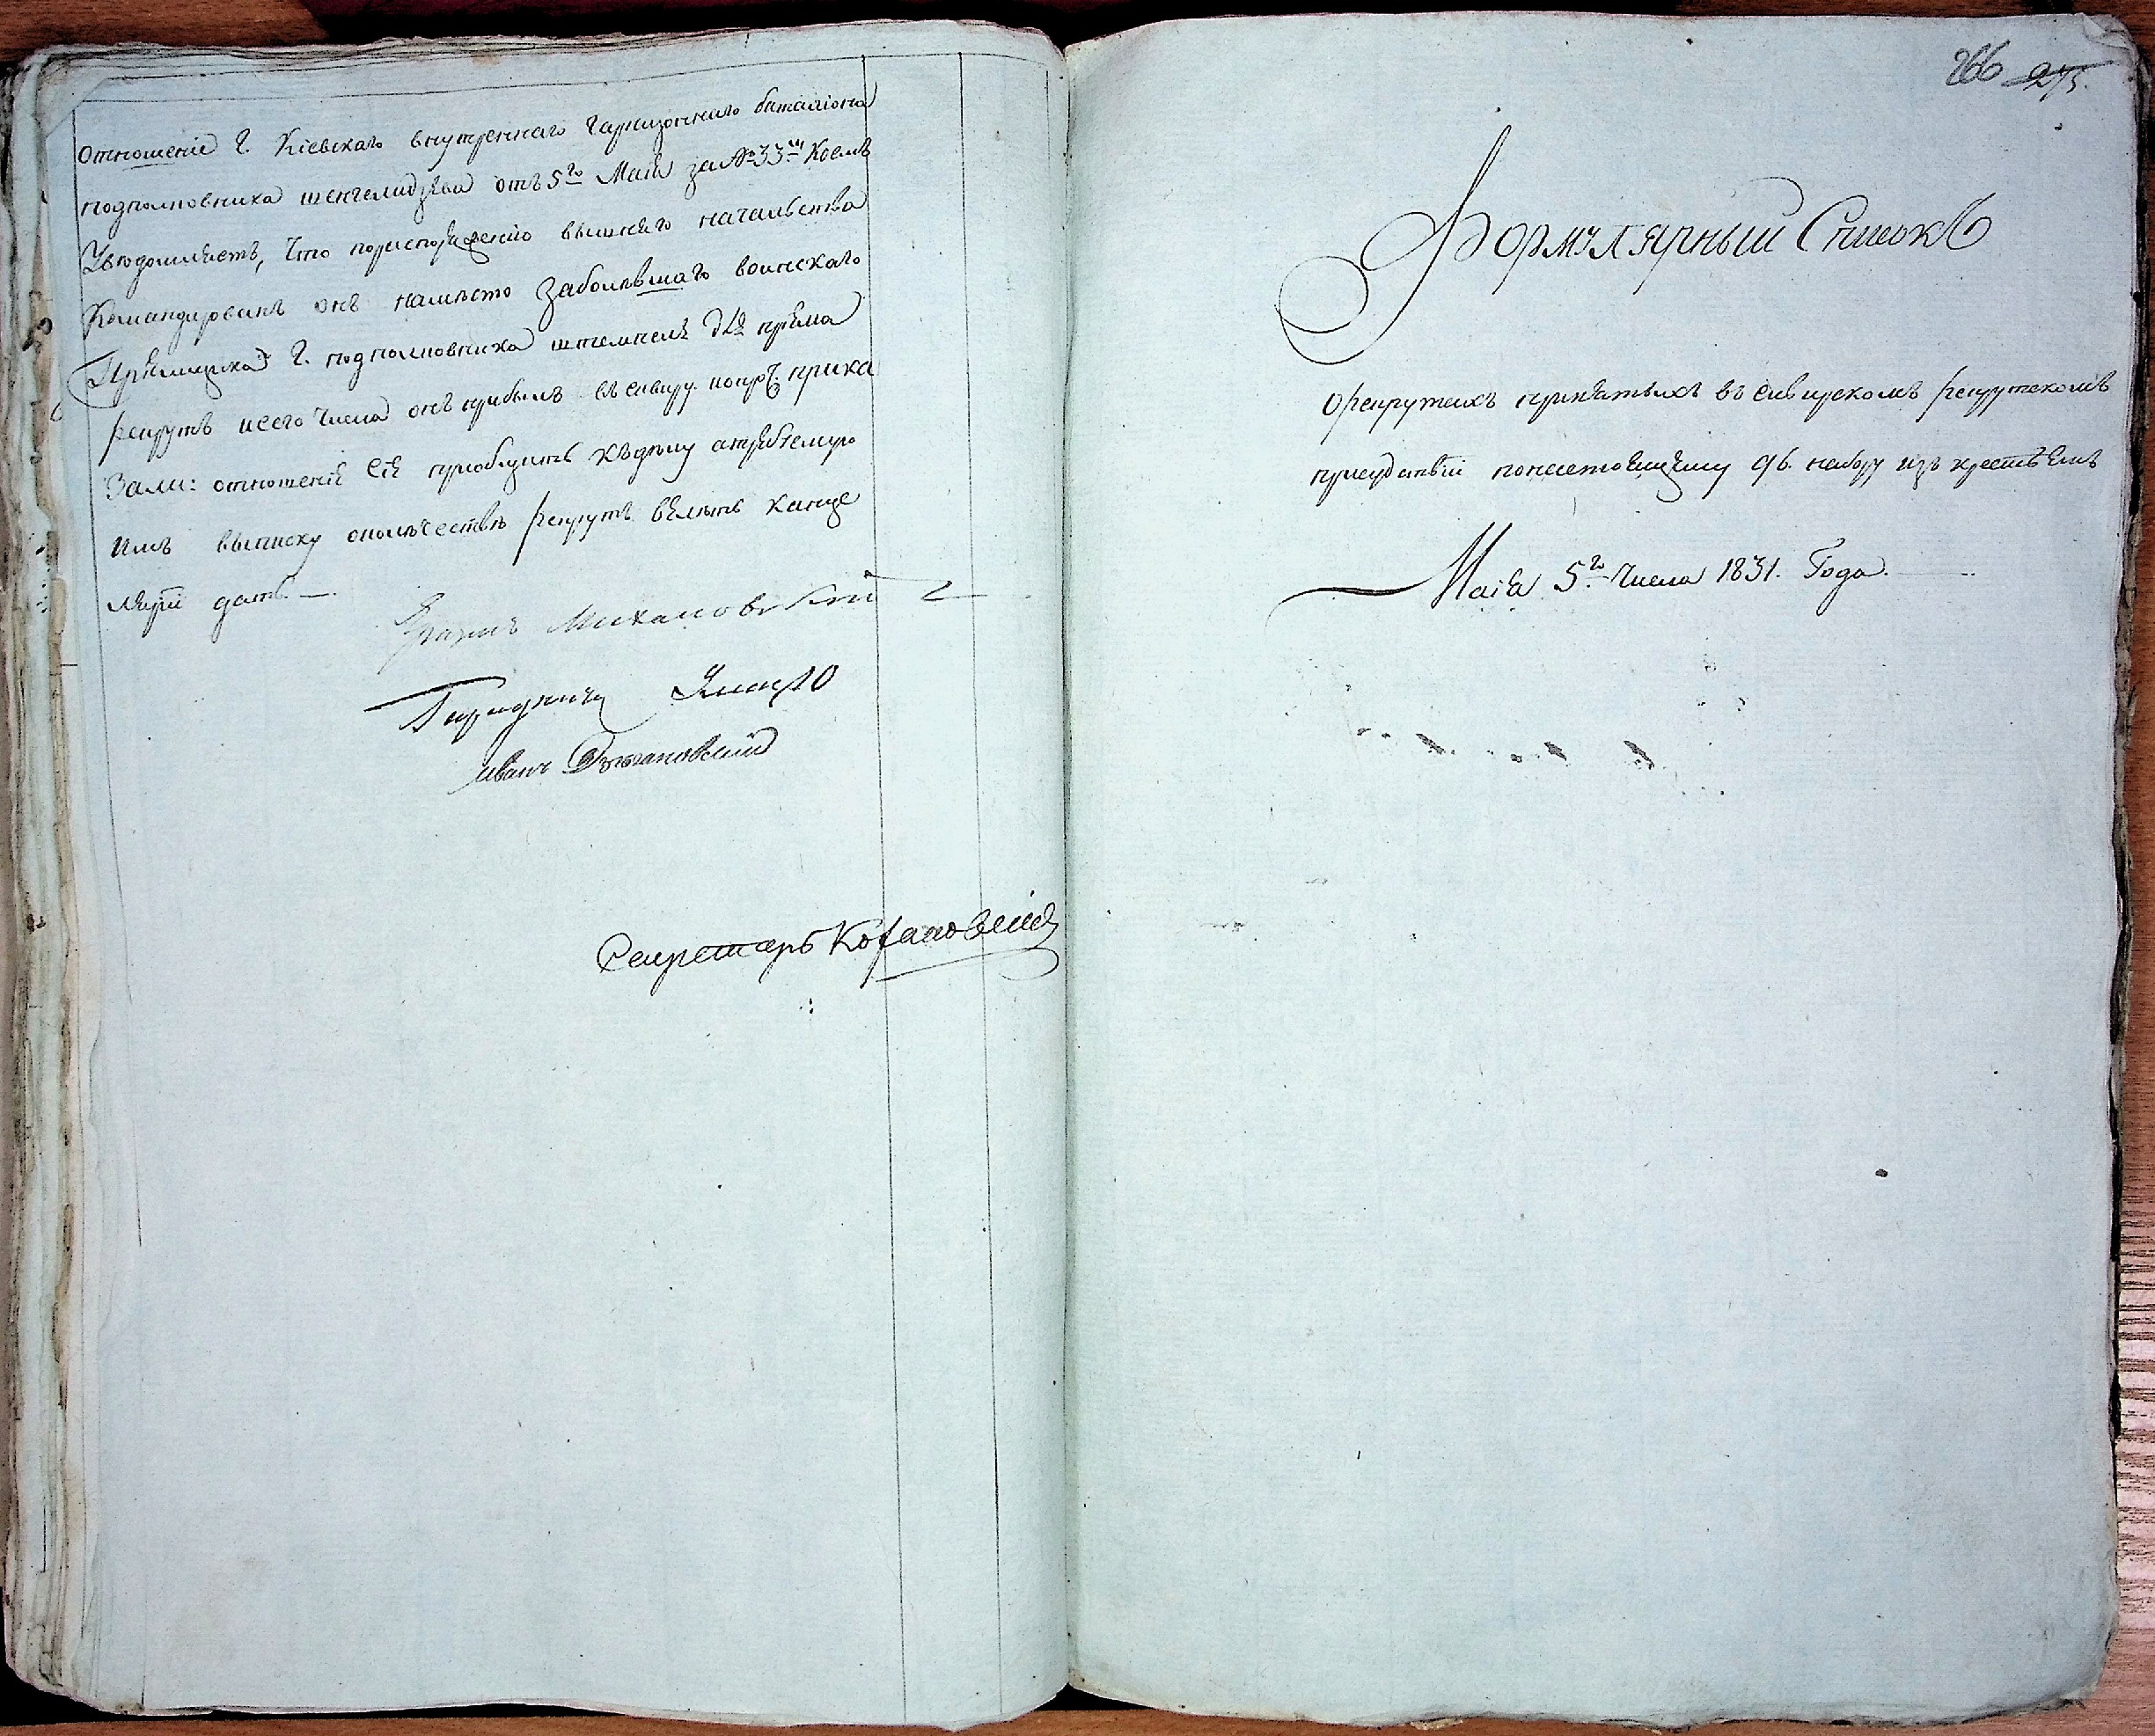 Отношеніе Г. Кіевскаго внутренняго Гарнизоннаго баталіона
подполковника шенгелидзева отъ 5го Маія за № 33м Коемъ
Уведомляетъ, Что пораспоряженію вышняго начальства
Командированъ онъ наместо Заболевшаго воинскаго
Пріемщика Г. подполковника штемпеля для пріема
рекрутъ исего Числа онъ прибылъ въ сквиру. попроч. прика
Зали: отношеніе Сіе приобщить кделу атребуемую
имъ выписку околичестве рекрутъ велеть канце
ляріи дать. —
Михаловскій
иванъ
Секретарь
266 275.
Формулярный Списокъ
Орекрутахъ принятыхъ въ Сквирскомъ рекрутскомъ
присудствіи понастоящему 96. набору изъ крестьянъ
Маія 5го Числа 1831. Года.